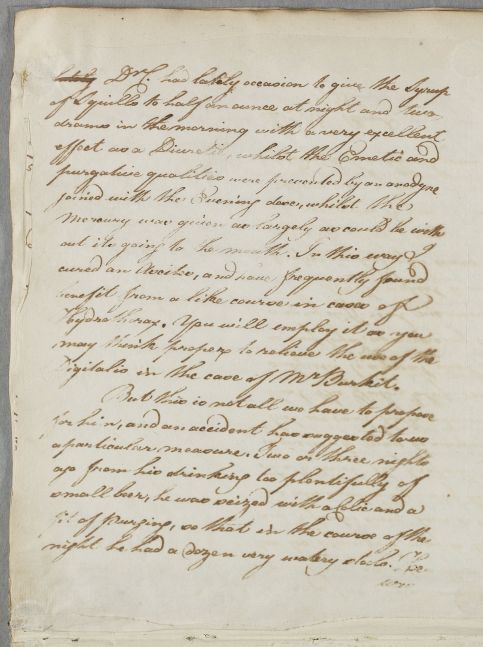 Dr. C. had lately occasion to give the Syrup
of Squills to half an ounce at night and two
drams in the morning with a very excellent
effect as a Diuretic, whilst the Emetic and
purgative qualities were prevented by an anodyne
joined with the Evening dose, whilst the
Mercury was given as largely as could be with
out its going to the mouth. In this way I
cured an Ascites, and have frequently found
benefit from a like course in cases of
Hydrothorax. You will employ it as you
may think proper to relieve the use of the
Digitalis in the case of Mr Burkit.
But this is not all we have to propose
for him, and an accident has suggested to us
a particular measure. Two or three nights
ago from his drinking too plentifully of
small beer, he was seized with a Colic and a
fit of Purging, so that in the course of the
night he had a dozen very watery stools.